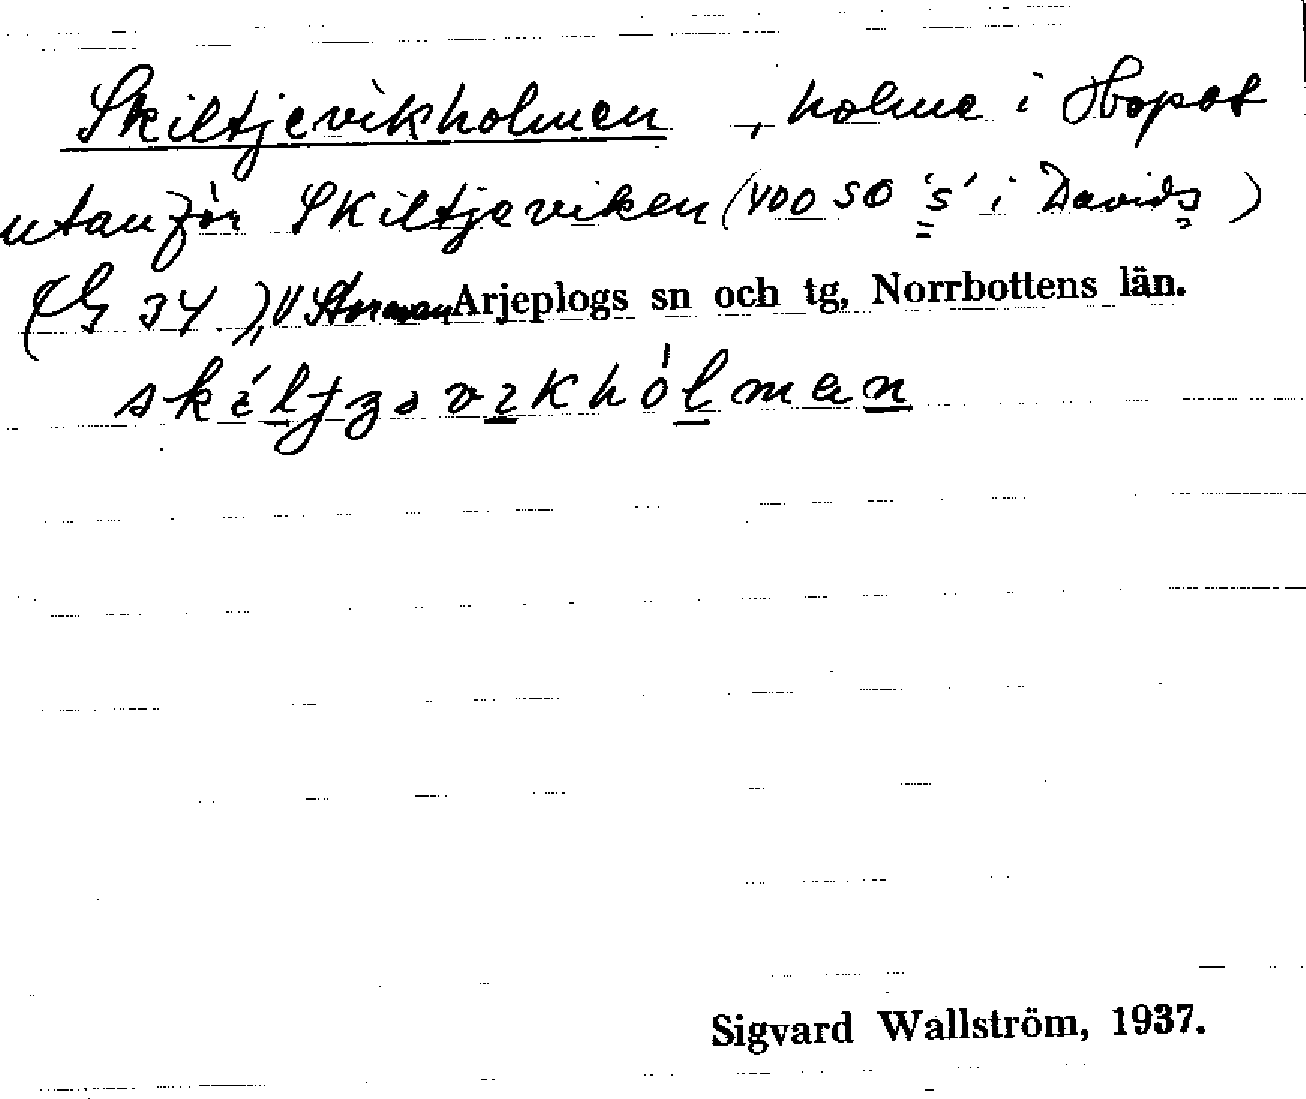 Skiltjevikholmen, holme i Hopet
utanför Skiltjeviken (400 50 's' i Davids)
(G 34), V Storavan Arjeplogs sn och tg, Norrbottens län.
Sigvard Wallström, 1937.